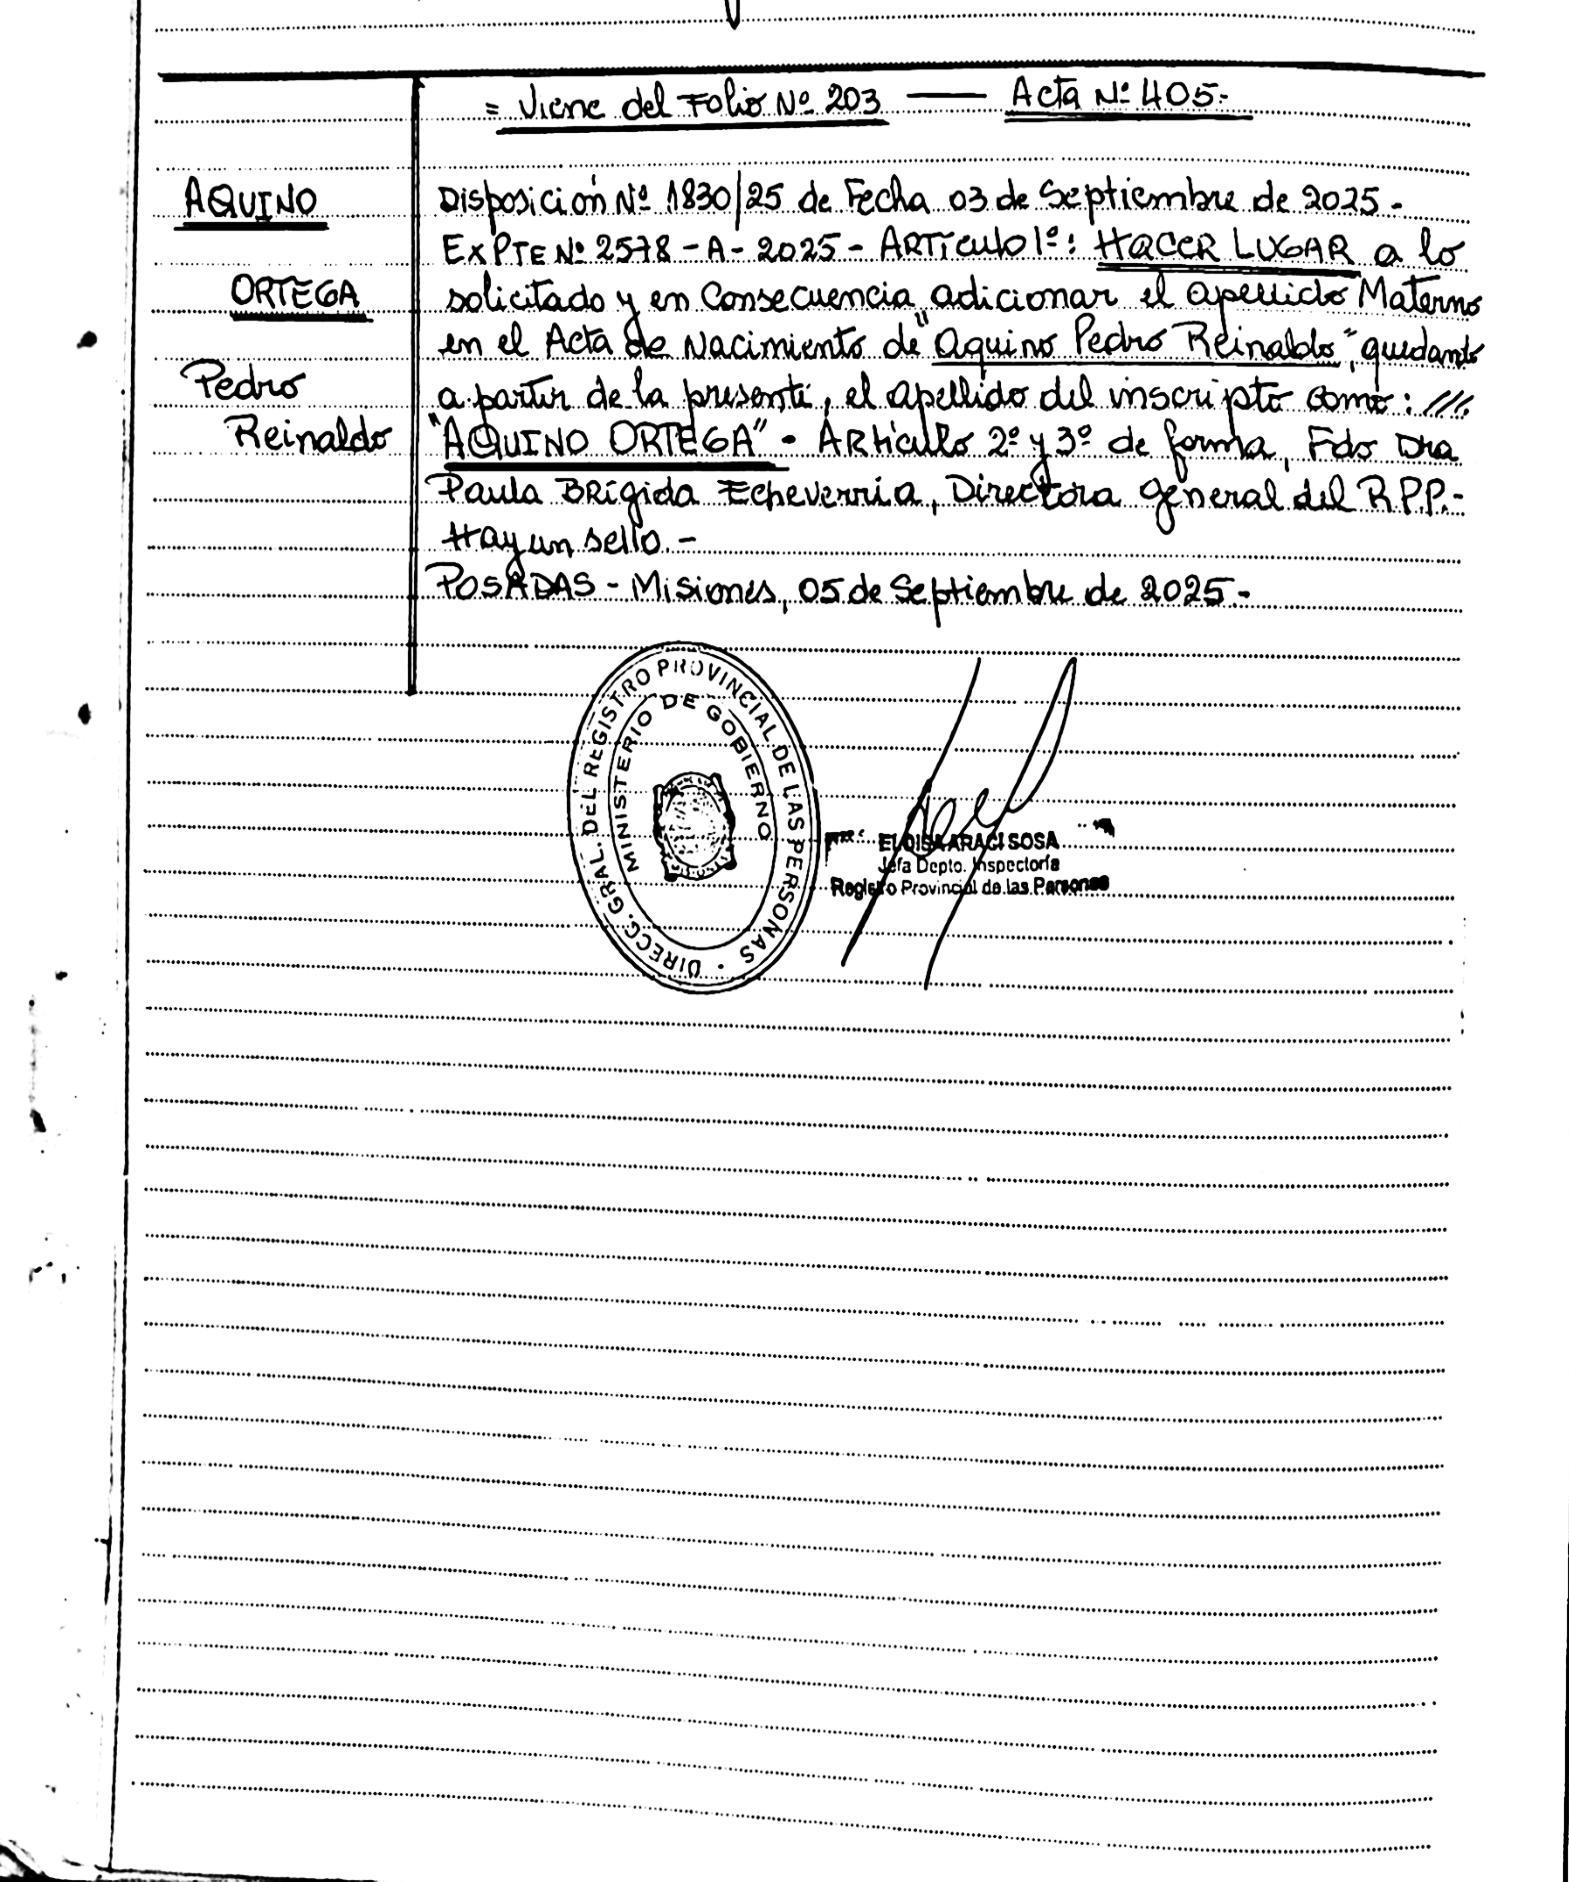 = Viene del Folio Nº 203 — Acta Nº 405.-
AQUINO
ORTEGA
Pedro
Reinaldo
Disposición Nº 1830/25 de Fecha 03 de Septiembre de 2025 -
EXPTE Nº 2578 - A - 2025 - ARTICULO 1º: HACER LUGAR a lo
solicitado y en Consecuencia adicionar el apellido Materno
en el Acta de Nacimiento de "Aquino Pedro Reinaldo", quedando
a partir de la presente, el apellido del inscripto como: ////.
"AQUINO ORTEGA" - ARticulo 2º y 3º de forma, Fdo Dra
Paula BRigida Echeverria, Directora general del R.P.P.-
Hay un sello. -
POSADAS - Misiones, 05 de Septiembre de 2025.-
DIRECC. GRAL. DEL REGISTRO PROVINCIAL DE LAS PERSONAS
MINISTERIO DE GOBIERNO
ELOISA ARACI SOSA
Jefa Depto. Inspectoría
Registro Provincial de las Personas